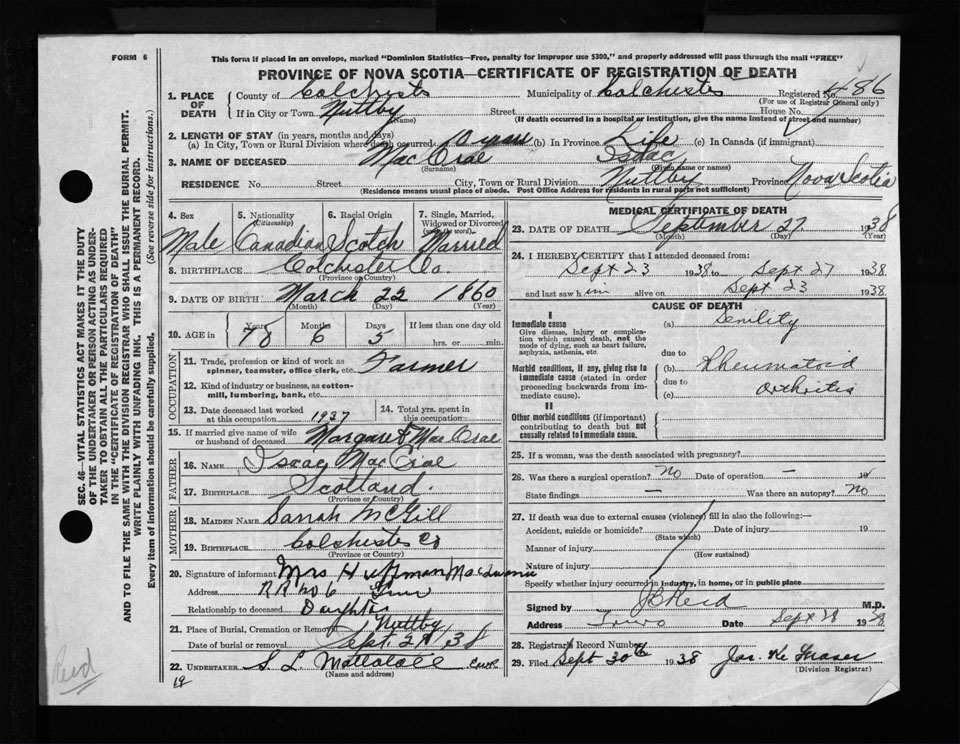 FORM 6
This form if placed in an envelope, marked "Dominion Statistics—Free, penalty for improper use $300," and properly addressed will pass through the mail "FREE"
PROVINCE OF NOVA SCOTIA—CERTIFICATE OF REGISTRATION OF DEATH
1. PLACE OF DEATH County of Colchester Municipality of Colchester Registered No. 486
(For use of Registrar General only)
If in City or Town Nuttby Street House No.
(Name) (If death occurred in a hospital or institution, give the name instead of street and number)
2. LENGTH OF STAY (in years, months and days)
(a) In City, Town or Rural Division where death occurred (b) In Province Life (c) In Canada (if immigrant)
3. NAME OF DECEASED Mac Isaac
(Surname) (Given name or names)
RESIDENCE No. Street City, Town or Rural Division Nuttby Province Nova Scotia
(Residence means usual place of abode. Post Office Address for residents in rural parts not sufficient)
4. Sex 5. Nationality (Citizenship) 6. Racial Origin 7. Single, Married, Widowed or Divorced (write the word)
Male Canadian Scotch Married
8. BIRTHPLACE Colchester Co.
(Province or Country)
9. DATE OF BIRTH March 22 1860
(Month) (Day) (Year)
10. AGE in Years Months Days If less than one day old
78 6 5 hrs. or min.
OCCUPATION
11. Trade, profession or kind of work as spinner, teamster, office clerk, etc. Farmer
12. Kind of industry or business, as cotton-mill, lumbering, bank, etc.
13. Date deceased last worked at this occupation 1937 14. Total yrs. spent in this occupation
15. If married give name of wife or husband of deceased Margaret Mac
FATHER
16. NAME Isaac Mac
17. BIRTHPLACE Scotland.
(Province or Country)
MOTHER
18. MAIDEN NAME Sarah McGill
19. BIRTHPLACE Colchester Co
(Province or Country)
20. Signature of informant Mrs Huffman
Address RR No 6 Truro
Relationship to deceased Daughter
21. Place of Burial, Cremation or Removal Nuttby
Date of burial or removal Sept. 29 / 38
22. UNDERTAKER S. L.
(Name and address)
MEDICAL CERTIFICATE OF DEATH
23. DATE OF DEATH September 27 1938
(Month) (Day) (Year)
24. I HEREBY CERTIFY that I attended deceased from:
Sept 23 1938 to Sept 27 1938
and last saw him alive on Sept 23 1938
CAUSE OF DEATH
I
Immediate cause (a) Senility
Give disease, injury or complication which caused death, not the mode of dying, such as heart failure, asphyxia, asthenia, etc.
due to
Morbid conditions, if any, giving rise to immediate cause (stated in order proceeding backwards from immediate cause). (b) Rheumatoid
due to
(c) Arthritis
II
Other morbid conditions (if important) contributing to death but not causally related to immediate cause.
25. If a woman, was the death associated with pregnancy?
26. Was there a surgical operation? No Date of operation — 19
State findings — Was there an autopsy? No
27. If death was due to external causes (violence) fill in also the following:—
Accident, suicide or homicide? Date of injury 19
(State which)
Manner of injury
(How sustained)
Nature of injury
Specify whether injury occurred in industry, in home, or in public place
Signed by Reid M.D.
Address Truro Date Sept 28 1938
28. Registrar's Record Number
29. Filed Sept 30th 1938 Jas. Fraser
(Division Registrar)
SEC. 46—VITAL STATISTICS ACT MAKES IT THE DUTY
OF THE UNDERTAKER OR PERSON ACTING AS UNDER-
TAKER TO OBTAIN ALL THE PARTICULARS REQUIRED
IN THE "CERTIFICATE OF REGISTRATION OF DEATH"
AND TO FILE THE SAME WITH THE DIVISION REGISTRAR WHO SHALL ISSUE THE BURIAL PERMIT.
WRITE PLAINLY WITH UNFADING INK. THIS IS A PERMANENT RECORD.
Every item of information should be carefully supplied. (See reverse side for instructions.)
Reid